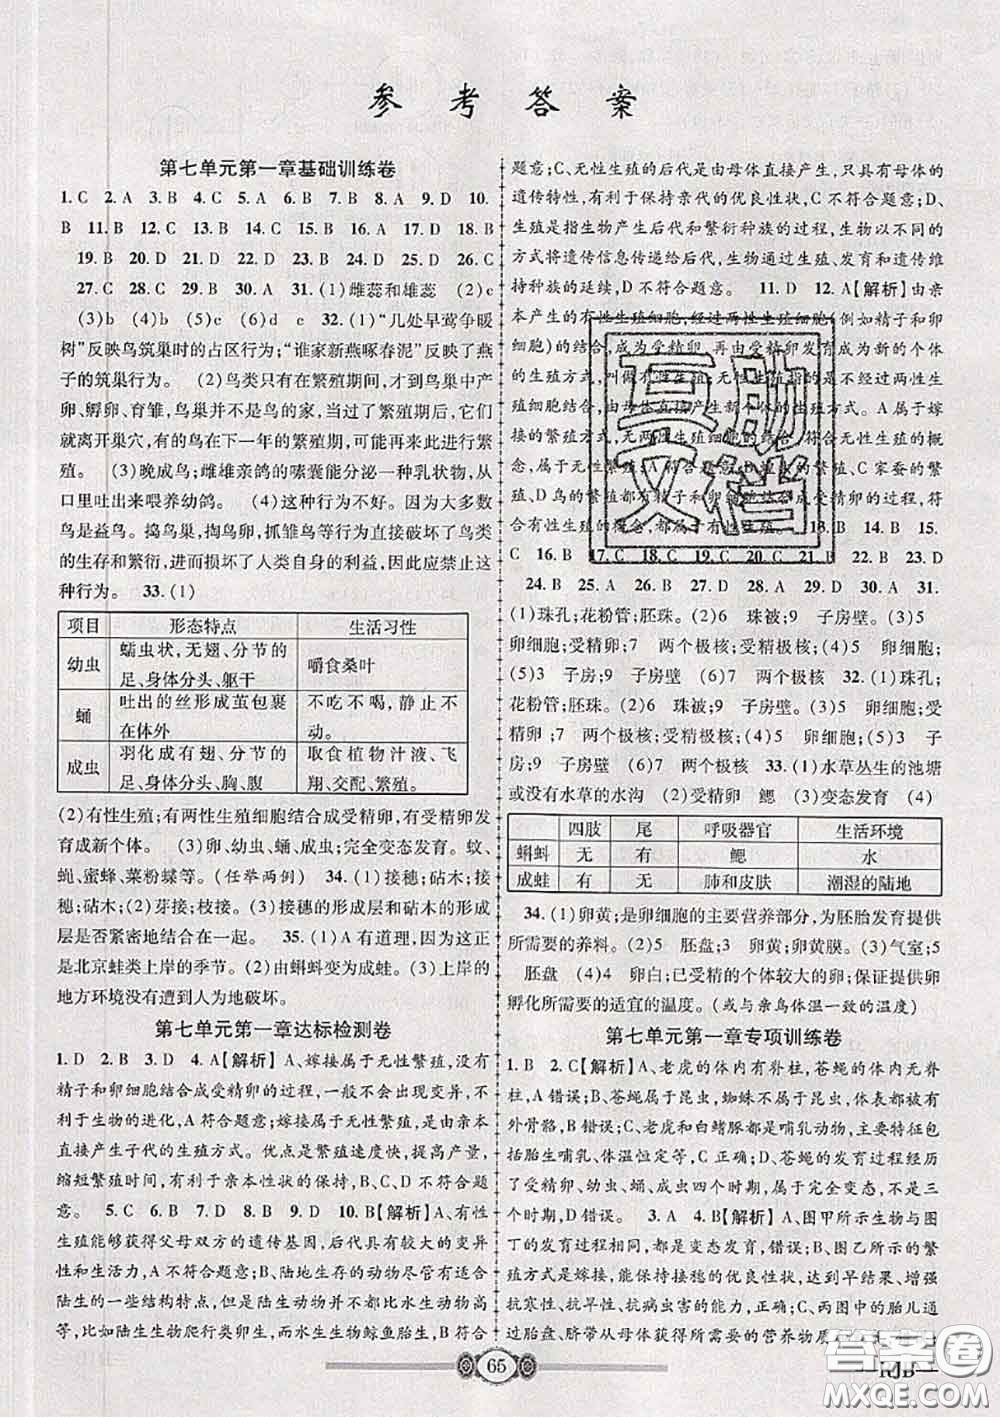 参考答案
第七单元第一章基础训练卷
1. C 2. A 3. B 4. C 5. A 6. B 7. B 8. A 9. D 10.
B 11. B 12. B 13. C 14. A 15. C 16. D 17. D 18. B
19. B 20. D 21. D 22. A 23. B 24. D 25. B 26. C
27. C 28. C 29. D 30. A 31. (1)雌蕊和雄蕊 (2)c
(3)b (4)c (5)c (6)d e 32. (1)“几处早莺争暖
树”反映鸟筑巢时的占区行为;“谁家新燕啄春泥”反映了燕
子的筑巢行为。 (2)鸟类只有在繁殖期间,才到鸟巢中产
卵、孵卵、育雏,鸟巢并不是鸟的家,当过了繁殖期后,它们就
离开巢穴,有的鸟在下一年的繁殖期,可能再来此进行繁
殖。 (3)晚成鸟;雌雄亲鸽的嗉囊能分泌一种乳状物,从
口里吐出来喂养幼鸽。 (4)这种行为不好。因为大多数
鸟是益鸟。捣鸟巢,掏鸟卵,抓雏鸟等行为直接破坏了鸟类
的生存和繁衍,进而损坏了人类自身的利益,因此应禁止这
种行为。 33. (1)
项目 形态特点 生活习性
幼虫 蠕虫状,无翅、分节的足、身体分头、躯干 嚼食桑叶
蛹 吐出的丝形成茧包裹在体外 不吃不喝,静止不动。
成虫 羽化成有翅、分节的足、身体分头、胸、腹 取食植物汁液、飞翔、交配、繁殖。
(2)有性生殖;有两性生殖细胞结合成受精卵,有受精卵发
育成新个体。 (3)卵、幼虫、蛹、成虫;完全变态发育。蚊、
蝇、蜜蜂、菜粉蝶等。(任举两例) 34. (1)接穗;砧木;接
穗;砧木。(2)芽接;枝接。(3)接穗的形成层和砧木的形成
层是否紧密地结合在一起。 35. (1)A有道理,因为这正
是北京蛙类上岸的季节。(2)由蝌蚪变为成蛙。(3)上岸的
地方环境没有遭到人为地破坏。
第七单元第一章达标检测卷
1. D 2. B 3. D 4. A【解析】A、嫁接属于无性繁殖,没有
精子和卵细胞结合成受精卵的过程,一般不会出现变异,不
利于生物的进化,A符合题意;嫁接属于无性繁殖,是由亲本
直接产生子代的生殖方式。优点是繁殖速度快,提高产量,
缩短繁殖时间,有利于亲本性状的保持,B、C、D不符合题
意。 5. C 6. B 7. C 8. D 9. D 10. B【解析】A、有性
生殖后能够获得父母双方的遗传基因,后代具有较大的变异
性的生活力,A不符合题意;B、陆地生存的动物尽管有适合
陆生的一些结构特点,但是胎生动物并不都比水生或两栖高
等,比如陆生生物爬行类卵生,而水生生物鲸鱼胎生,B符合
题意;C、无性生殖的后代是由母体直接产生,只具有母体的
遗传特性,有利于保持亲代的优良性状,C不符合题意;D、
生殖是指生物产生后代和繁衍种族的过程,生物以不同的
方式将遗传信息传递给后代,生物通过生殖、发育和遗传维
持种族的延续,D不符合题意。 11. D 12. A【解析】由亲
本产生的有性生殖细胞,经过两性生殖细胞(例如精子和卵
细胞)的结合,成为受精卵,再由受精卵发育成为新的个体
的生殖方式,叫做有性生殖;无性生殖指的是不经过两性生殖
细胞结合,由母体直接产生新个体的生殖方式。A属于嫁
接的繁殖方式,无两性生殖细胞的结合,符合无性生殖的概
念,属于无性繁殖;A符合题意;B、C家蚕的繁
殖,D的繁殖都有精子和卵细胞结合成受精卵的过程,符
合有性生殖的概念,都属于有性生殖。 13. C 14. B 15.
C 16. B 17. C 18. C 19. C 20. D 21. B 22. B 23. D
24. B 25. D 26. C 27. D 28. B 29. A 30. A 31.
(1)珠孔;花粉管;胚珠。(2)6 珠被;9 子房壁。(3)5
卵细胞;受精卵;7 两个极核;受精极核;(4)5 卵细胞。
(5)3 子房;9 子房壁;(6)7 两个极核 32. (1)珠孔;
花粉管;胚珠。(2)6 珠被;9 子房壁。(3)5 卵细胞;受
精卵 ;7 两个极核;受精极核(4)5 卵细胞;(5)3 子
房;9 子房壁 (6)7 两个极核 33. (1)水草丛生的池塘
或没有水草的水沟 (2)受精卵 鳃 (3)变态发育 (4)
四肢 尾 呼吸器官 生活环境
蝌蚪 无 有 鳃 水
成蛙 有 无 肺和皮肤 潮湿的陆地
34. (1)卵黄;是卵细胞的主要营养部分,为胚胎发育提供
所需要的养料。(2)5 胚盘;3 卵黄;卵黄膜。(3)气室;5
胚盘 (4)4 卵白;已受精的个体较大的鸟卵;保证提供卵
孵化所需要的适宜的温度。(或与亲鸟体温一致的温度)
第七单元第一章专项训练卷
1. B 2. C【解析】A、老虎的体内有脊柱,苍蝇的体内无脊
柱,A错误;B、苍蝇属于昆虫,蜘蛛不属于昆虫,体表都被有
外骨骼,B错误;C、老虎和白鳍豚都是哺乳动物,主要特征包
括胎生哺乳、体温恒定等,C正确;D、苍蝇的发育过程经历
了受精卵、幼虫、蛹、成虫四个时期,属于完全变态,不是三
个时期,D错误。 3. A 4. B【解析】A、图甲所示生物与图
丁的发育过程相同,都是变态发育,错误;B、图乙所示的繁
殖方式是嫁接,能保持接穗的优良性状,达到早结果、增强
抗寒性、抗旱性、抗病虫害的能力,正确;C、丙图中的胎儿通
过胎盘、脐带从母体获得所需要的营养物质
65
RJB
直助文档
答案圈
MXQE.COM